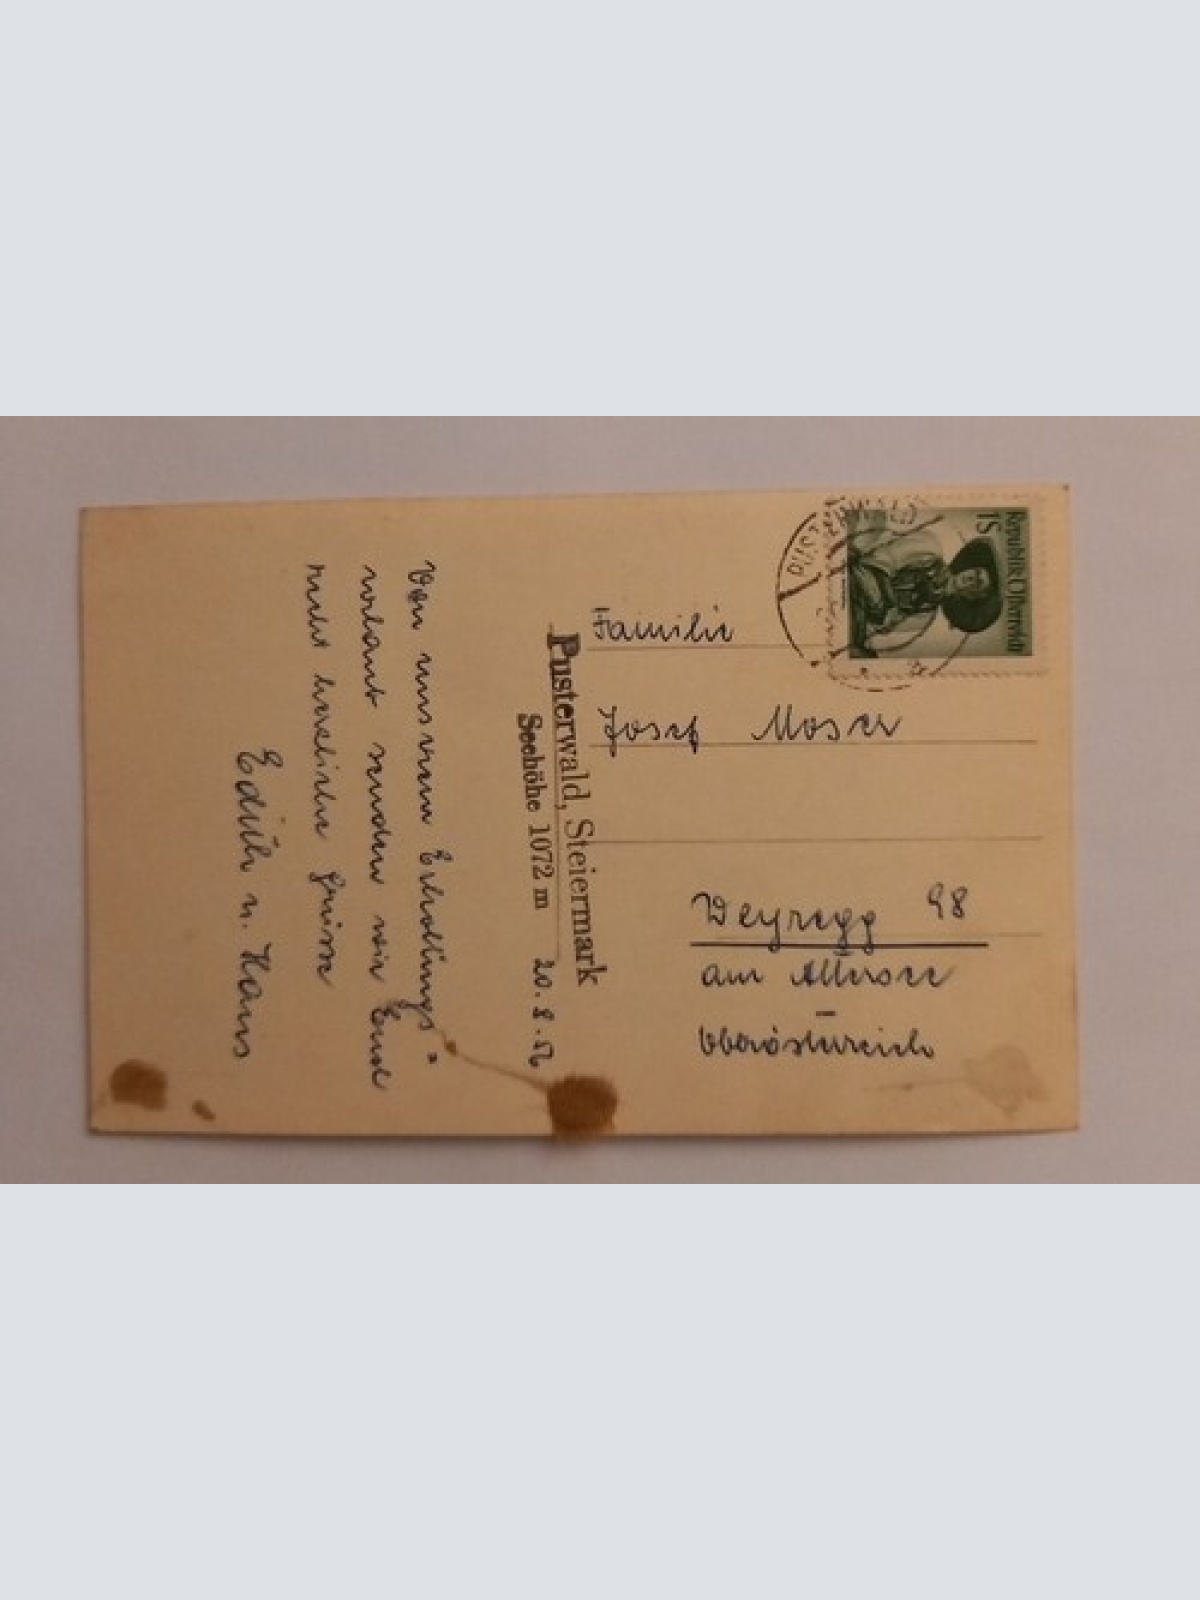 Von unseren Erholungs"
urlaub senden wir Euch
recht herzliche Grüsse
Edith u. Hans
Pusterwald, Steiermark
Seehöhe 1072 m
20. 8. 56
Republik Österreich
1 S
PUSTERWALD
Familie
Josef Moser
Weyregg 98
am Attersee
Oberösterreich